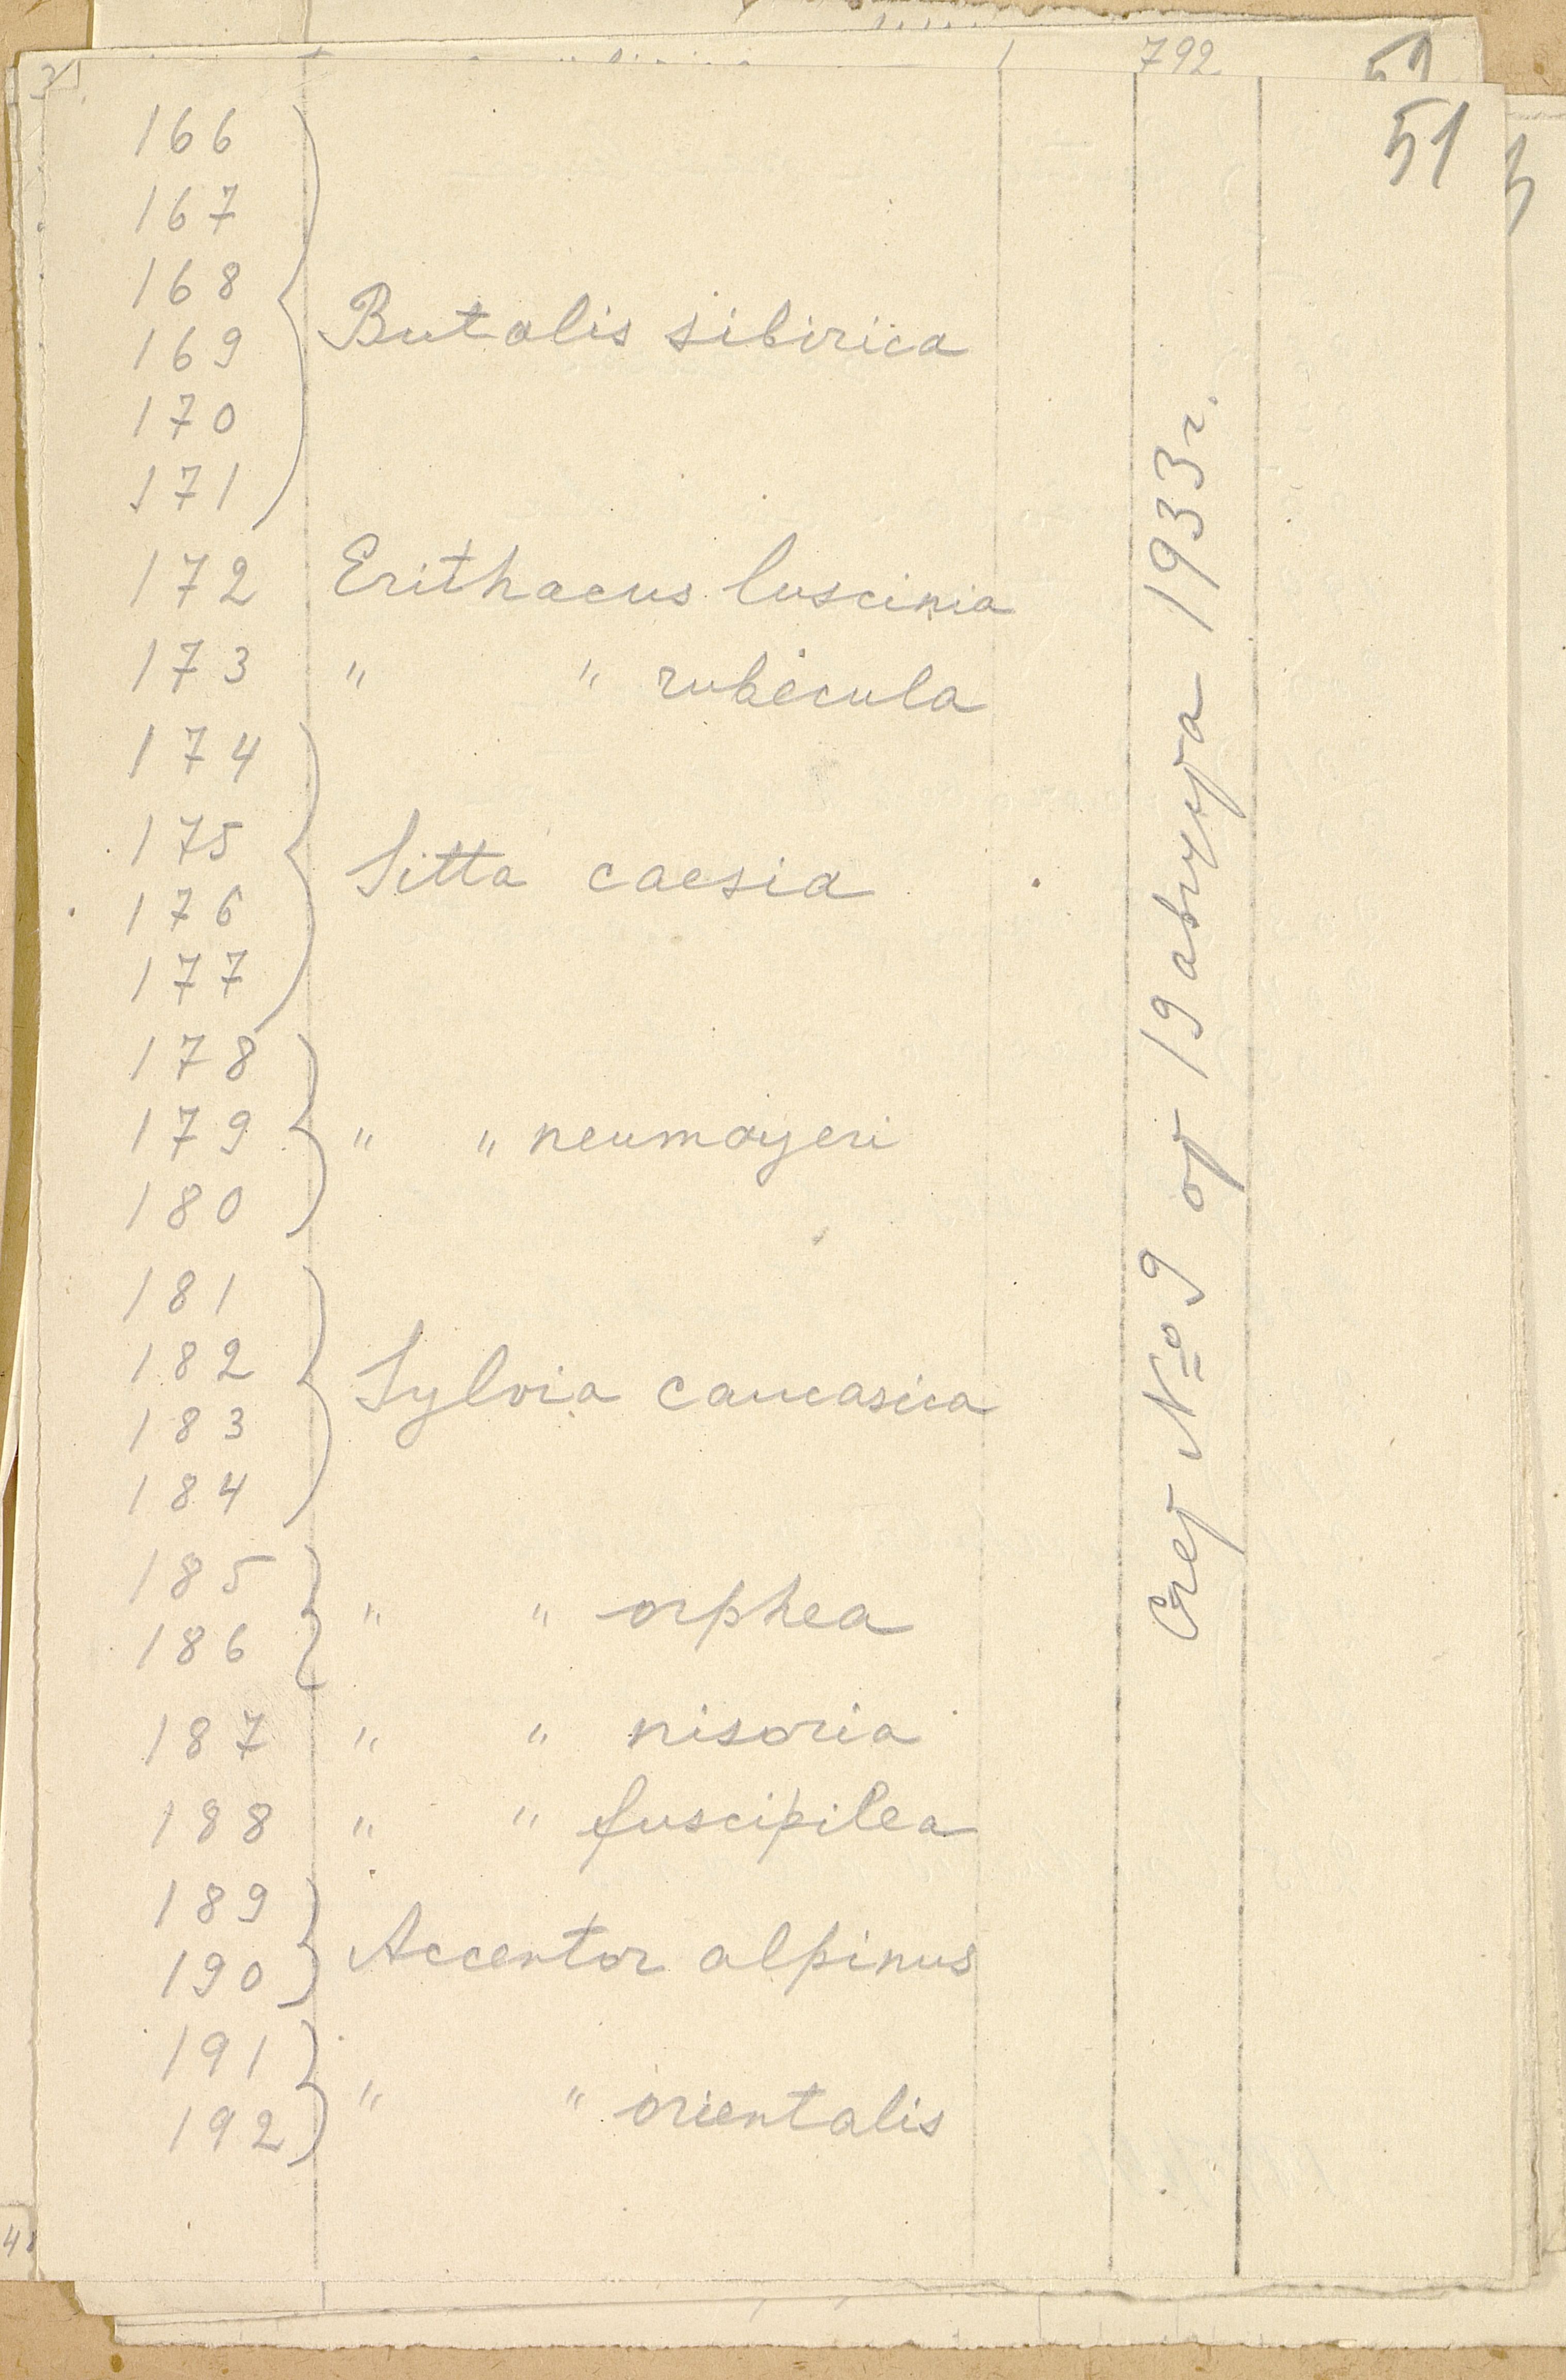 792
51
166
167
168
169
170
171
Butalis sibirica
172 Erithacus luscinia
173 " " rubecula
174
175
176
177
Sitta caesia
178
179
180
" " neumayeri
181
182
183
184
Sylvia caucasica
185
186
" " orphea
187 " " nisoria
188 " " fuscipilea
189
190
Accentor alpinus
191
192
" " orientalis
Счет № 9 от 19 августа 1933 г.